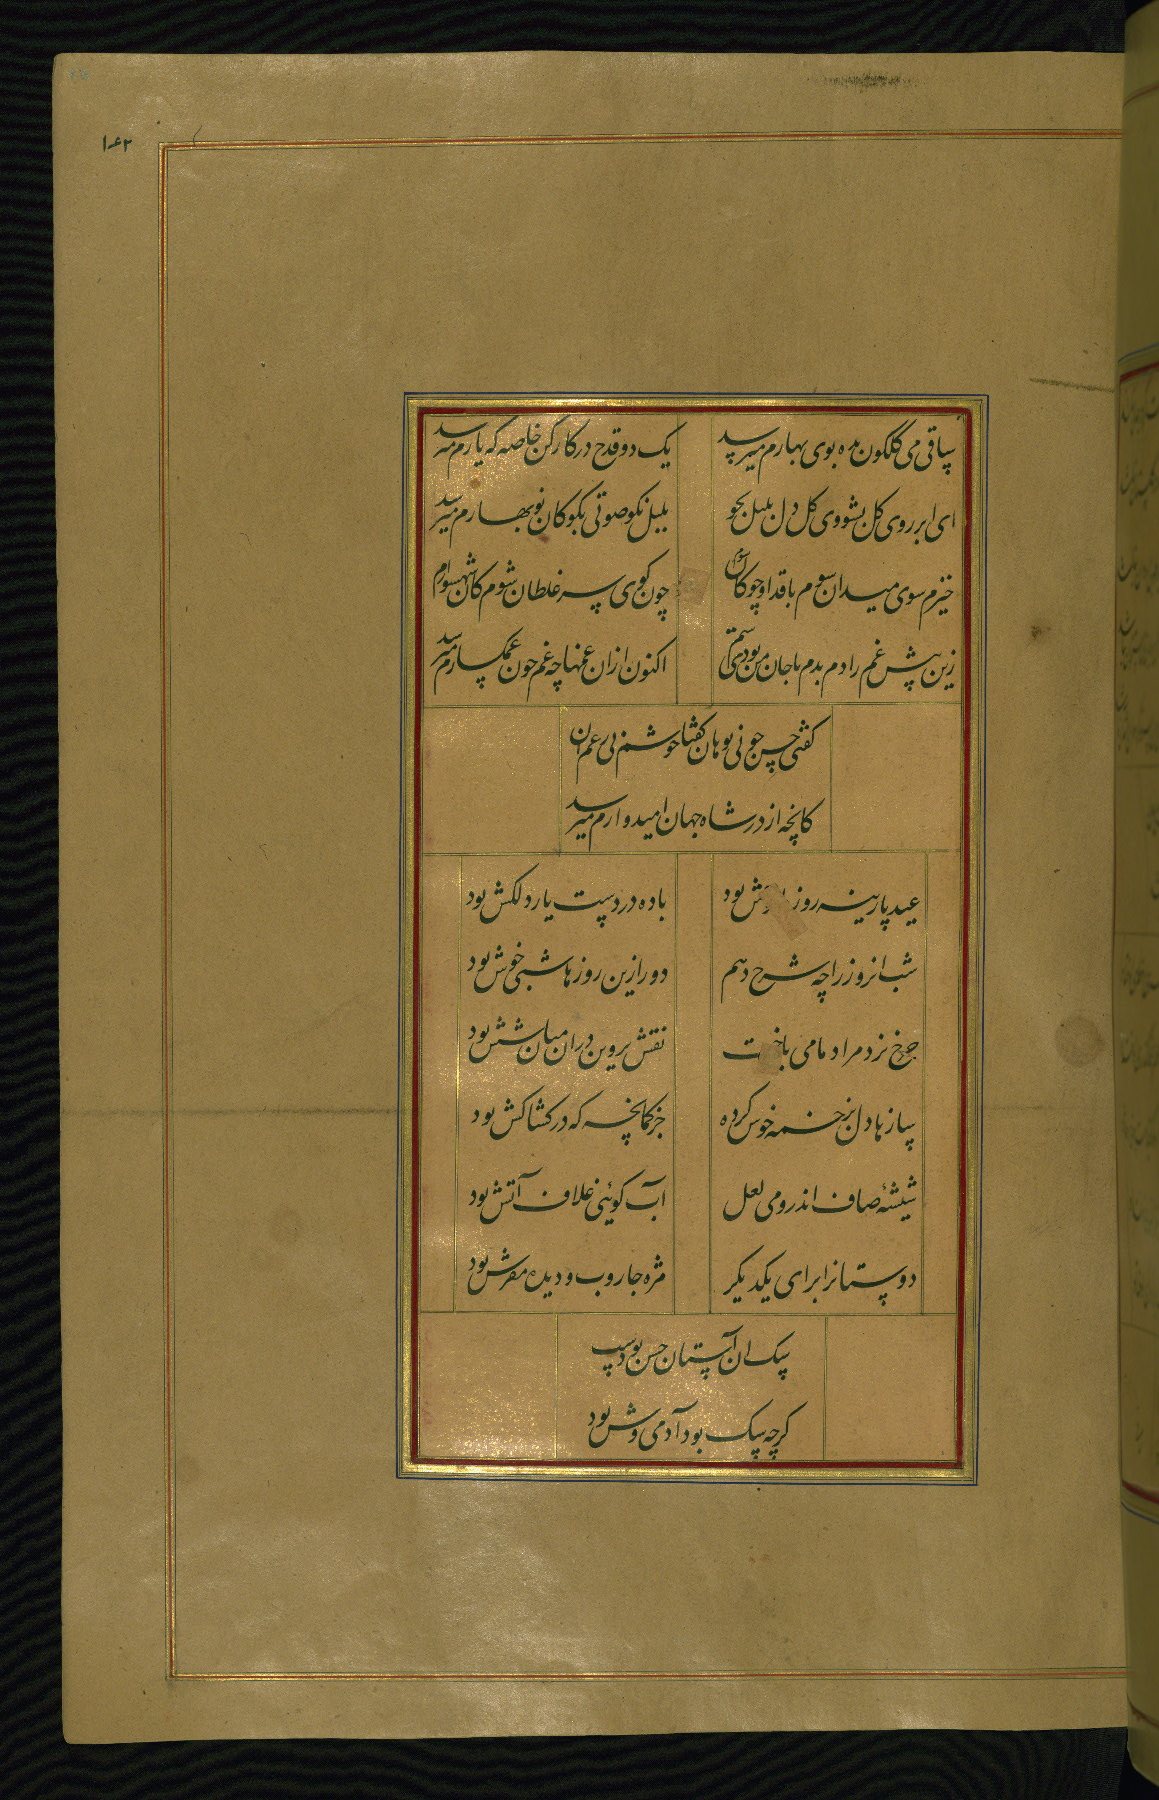 ۱۰۴۲
ساقی می گلگون بده بوی بهارم میرسد
یک دو قدح در کار کن خاصه که یارم میرسد
ای ابر روی گل بشو وی گل دل بلبل بجو
بلبل نکو صوتی بگو کان نوبهارم میرسد
خیزم سوی میدان شوم با قد او چوگان شوم
چون گوی سر غلطان شوم کان شهسوارم
زین پیش غم را دم بدم با جان من بودی ستم
اکنون ازان غمها چه غم چون غمگسارم میرسد
گفتی حسن چونی تو هان گفتا خوشم بی غم ازان
کانچه از در شاه جهان امیدوارم میرسد
عید پارینه روز خوش بود
باده در دست یار دلکش بود
شب انروز را چه شرح دهم
دور ازین روزها شبی خوش بود
چرخ نرد مراد ما می باخت
نقش پروین دران میان شش بود
سازها دل بزخمه خوش کرده
جز کمانچه که در کشاکش بود
شیشهٔ صاف اندرو می لعل
آب گوئی غلاف آتش بود
دوستانرا برای یکدیگر
مژه جاروب و دیده مفرش بود
سگ ان آستان حسن بودست
گرچه سگ بود آدمی وش بود